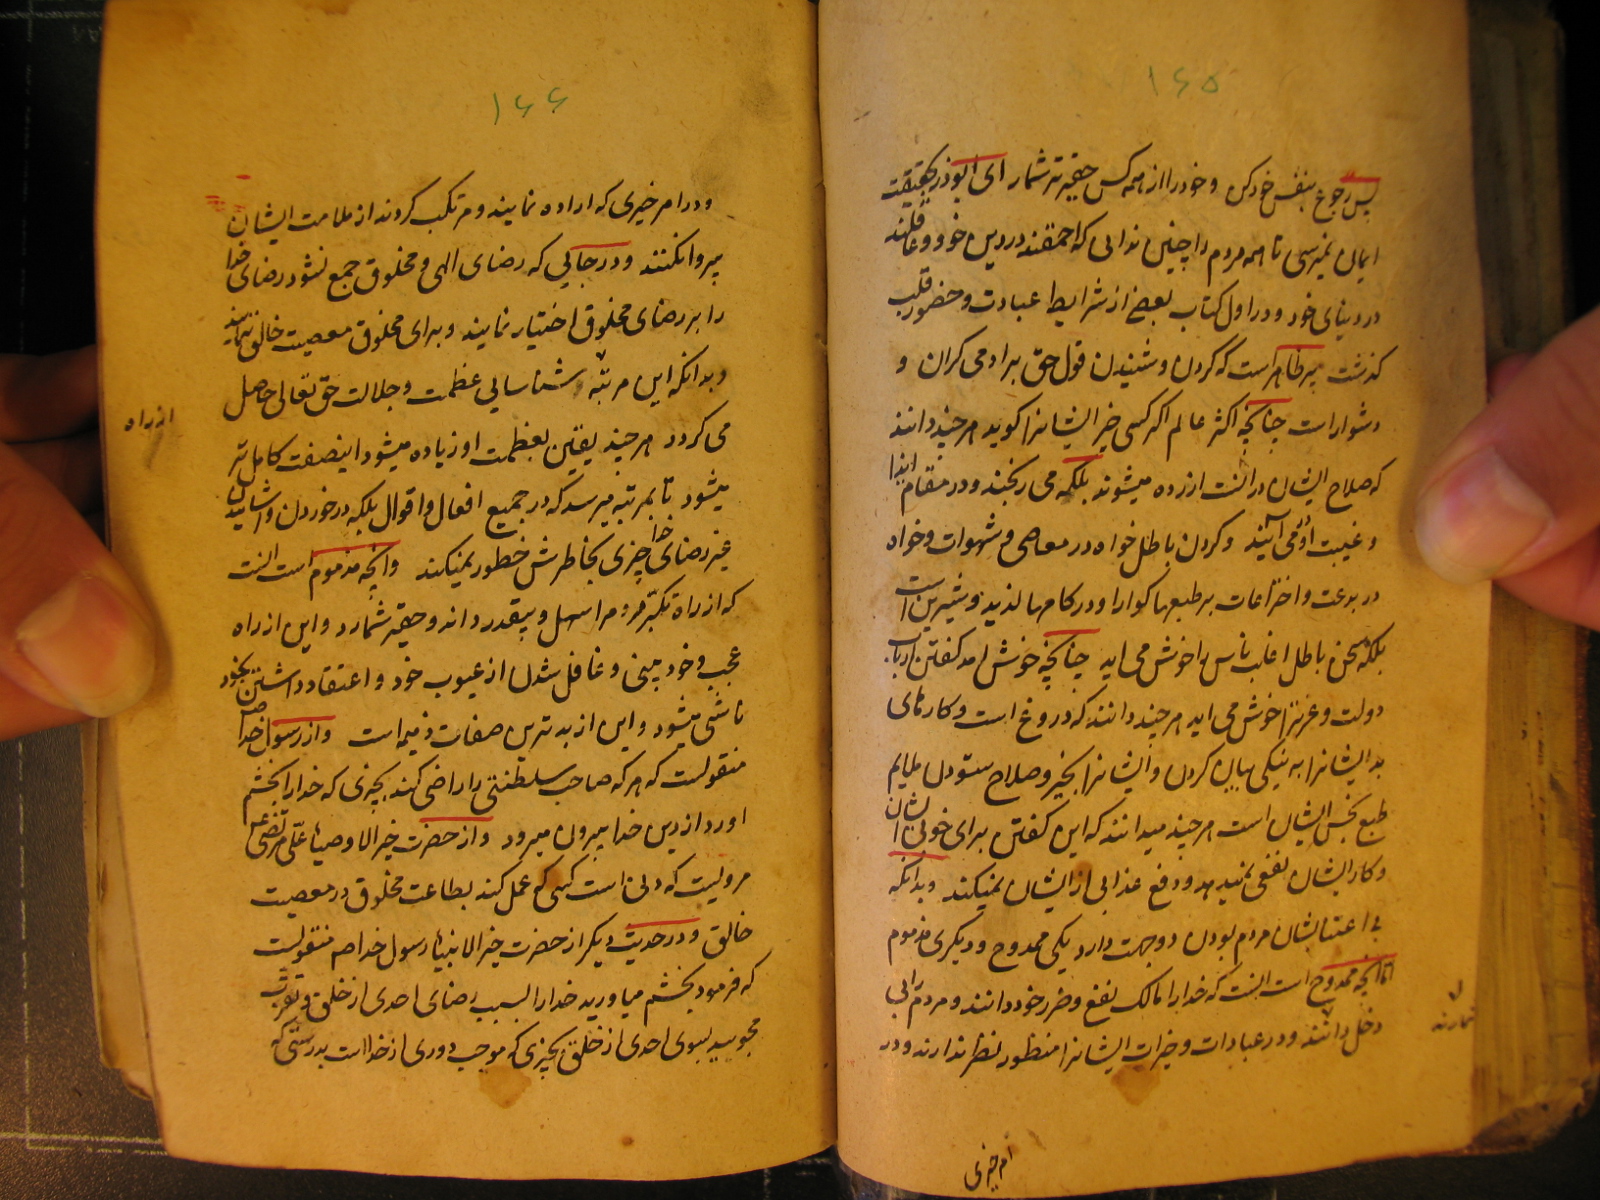 ۱۶۵
پس رجوع بنفس خود کن و خود را از همه کس حقیرتر شمار ای ابوذر بحقیقت
ایمان نمیرسی تا همه مردم را چنین ندانی که احمقند در دین خود و عاقلند
در دنیای خود و در اول کتاب بعضی از شرایط عبادت و حضور قلب
گذشت بر ظاهر است که کردن و شنیدن قول حق بر آدمی گران و
دشوار است چنانچه اکثر عالم اگر کسی خیر ایشانرا گوید هرچند دانند
که صلاح ایشان در آنست ازرده میشوند بلکه می رنجند و در مقام ایذا
و غیبت او می آیند و کردن باطل خواه در معاصی و شهوات و خواه
در بدعت و اختراعات بر طبعها گوارا و در کامها لذیذ و شیرین است
بلکه سخن باطل اغلب ناس را خوش می اید چنانچه خوش امد گفتن ارباب
دولت و عزترا خوش می اید هرچند دانند که دروغ است و کارهای
بد ایشانرا به نیکی بیان کردن و ایشانرا بخیر و صلاح ستودن ملایم
طبع نحس ایشان است هرچند میدانند که این گفتن برای خوبی ایشان
و کار ایشان نفعی نمیدهد و دفع عذابی از ایشان نمیکند و بدانکه
بی اعتنا بشان مردم بودن دو جهت دارد یکی ممدوح و دیگری مذموم
اما آنچه ممدوح است آنست که خدا را مالک نفع و ضرر خود دانند و مردم را بی
دخل دانند و در عبادات و خیرات ایشانرا منظور نظر ندارند و در
امر خیری
۱۶۶
و در امر خیری که اراده نمایند و مرتکب گردند از ملامت ایشان
پروا نکنند و در جایی که رضای الهی و مخلوق جمع نشود رضای خدا
را بر رضای مخلوق اختیار نمایند و برای مخلوق معصیت خالق ننمایند
و بدانکه این مرتبه شناسایی عظمت و جلالت حق تعالی حاصل
از راه
می گردد هرچند یقین بعظمت او زیاده میشود اینصفت کامل تر
میشود تا بمرتبه میرسد که در جمیع افعال و اقوال بلکه در خوردن و اشامیدن
غیر رضای خدا چیزی بخاطرش خطور نمیکند و آنچه مذموم است آنست
که از راه تکبر مردم را سهل و بیقدر داند و حقیر شمارد و این از راه
عجب و خود بینی و غافل شدن از عیوب خود و اعتقاد داشتن بخود
ناشی میشود و این از بدترین صفات ذمیمه است و از رسول خدا ص
منقولست که هر که صاحب سلطنتی را راضی کند بچیزی که خدا را بخشم
اورد از دین خدا بیرون میرود و از حضرت خیر الاوصیاء علی مرتضی ع
مرویست که دین است کسی که عمل کند بطاعت مخلوق در معصیت
خالق و در حدیث دیگر از حضرت خیر الانبیاء رسول خدا ص منقولست
که فرمود بخشم میاورید خدا را بسبب رضای احدی از خلق و تقرب
مجویید بسوی احدی از خلق بچیزی که موجب دوری از خدا است بدرستی که